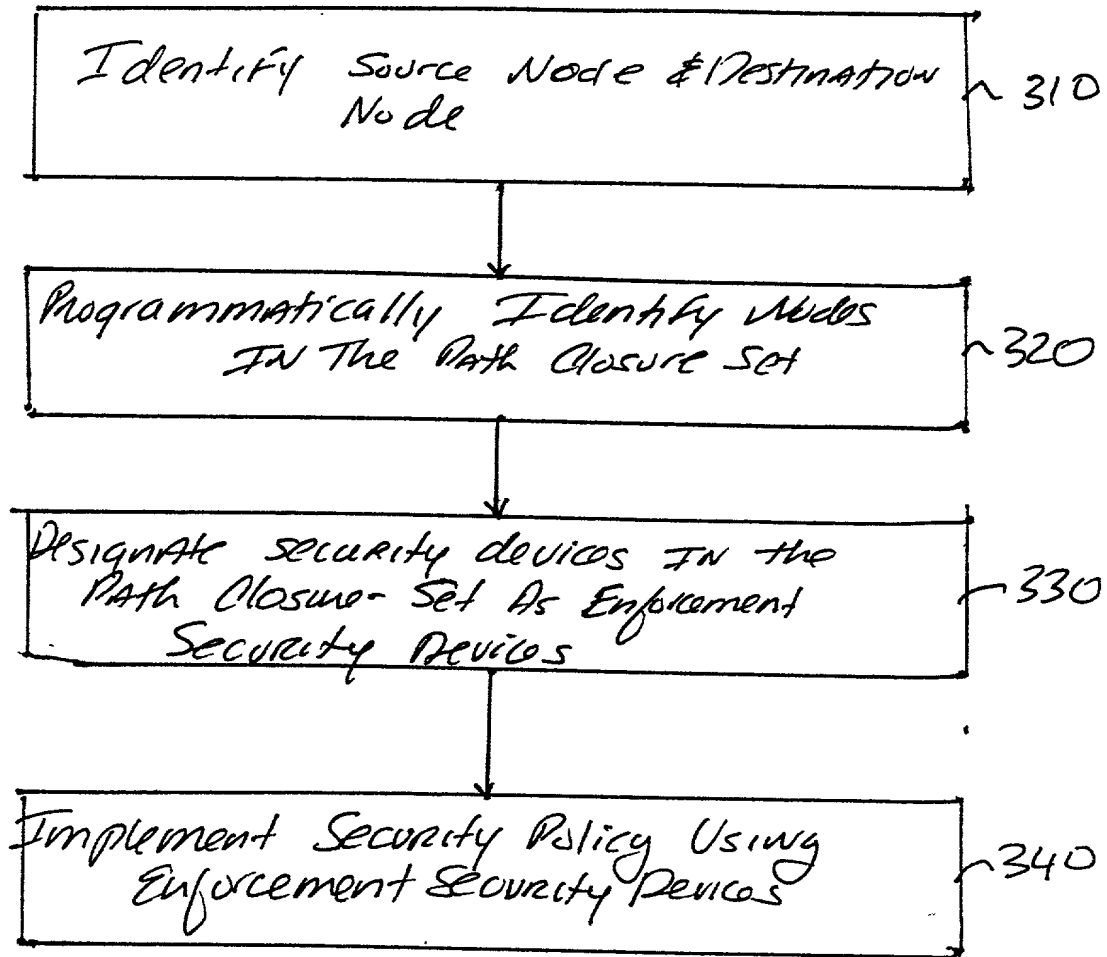 Identify Source Node & Destination
Node
310
Programmatically Identify Nodes
IN The Path Closure Set
320
Designate security devices IN the
Path Closure-Set As Enforcement
Security Devices
330
Implement Security Policy Using
Enforcement Security Devices
340